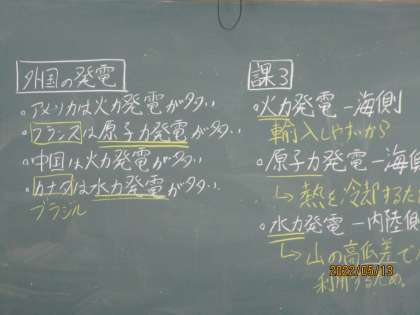 外国の発電
・アメリカは火力発電が多い
・フランスは原子力発電が多い
・中国は火力発電が多い
・カナダは水力発電が多い
ブラジル
課3
・火力発電ー海側
輸入しやすいから
・原子力発電ー海側
↳熱を冷却するた
・水力発電ー内陸側
↳山の高低差を
利用するため。
2022/05/13